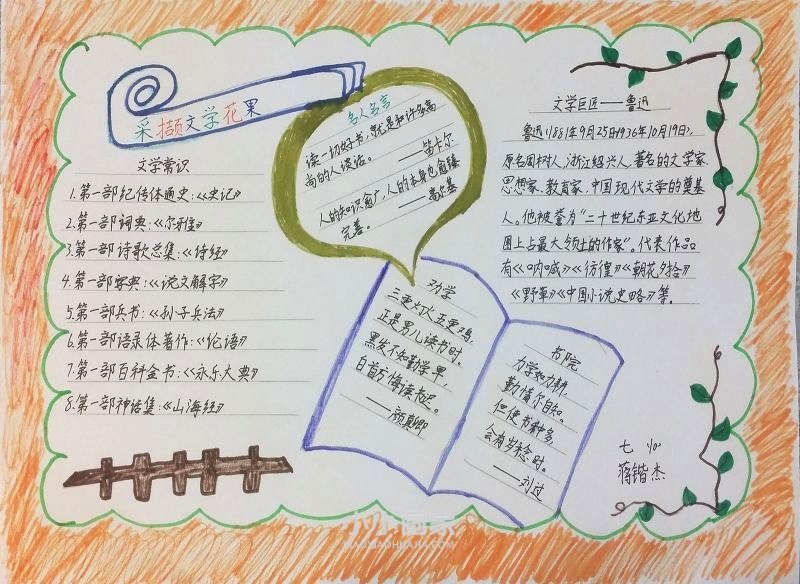 采撷文学花果
文学常识
1.第一部纪传体通史:《史记》
2.第一部词典:《尔雅》
3.第一部诗歌总集:《诗经》
4.第一部字典:《说文解字》
5.第一部兵书:《孙子兵法》
6.第一部语录体著作:《伦语》
7.第一部百科全书:《永乐大典》
8.第一部神话集:《山海经》
名人名言
读一切好书,就是和许多高
尚的人谈话。
——笛卡尔
人的知识愈广,人的本身也愈臻
完善。——高尔基
劝学
三更灯火五更鸡,
正是男儿读书时。
黑发不知勤学早,
白首方悔读书迟。
——颜真卿
书院
力学如力耕,
勤惰尔自知。
但使书种多,
会有岁稔时。
——刘过
文学巨匠——鲁迅
鲁迅1881年9月25日1936年10月19日),
原名周树人,浙江绍兴人,著名的文学家、
思想家、教育家、中国现代文学的奠基
人。他被誉为“二十世纪东亚文化地
图上占最大领土的作家”。代表作品
有《呐喊》《彷徨》《朝花夕拾》
《野草》《中国小说史略》等。
蒋锴杰
小小画家
XIAOXIAOHUAJIA.COM